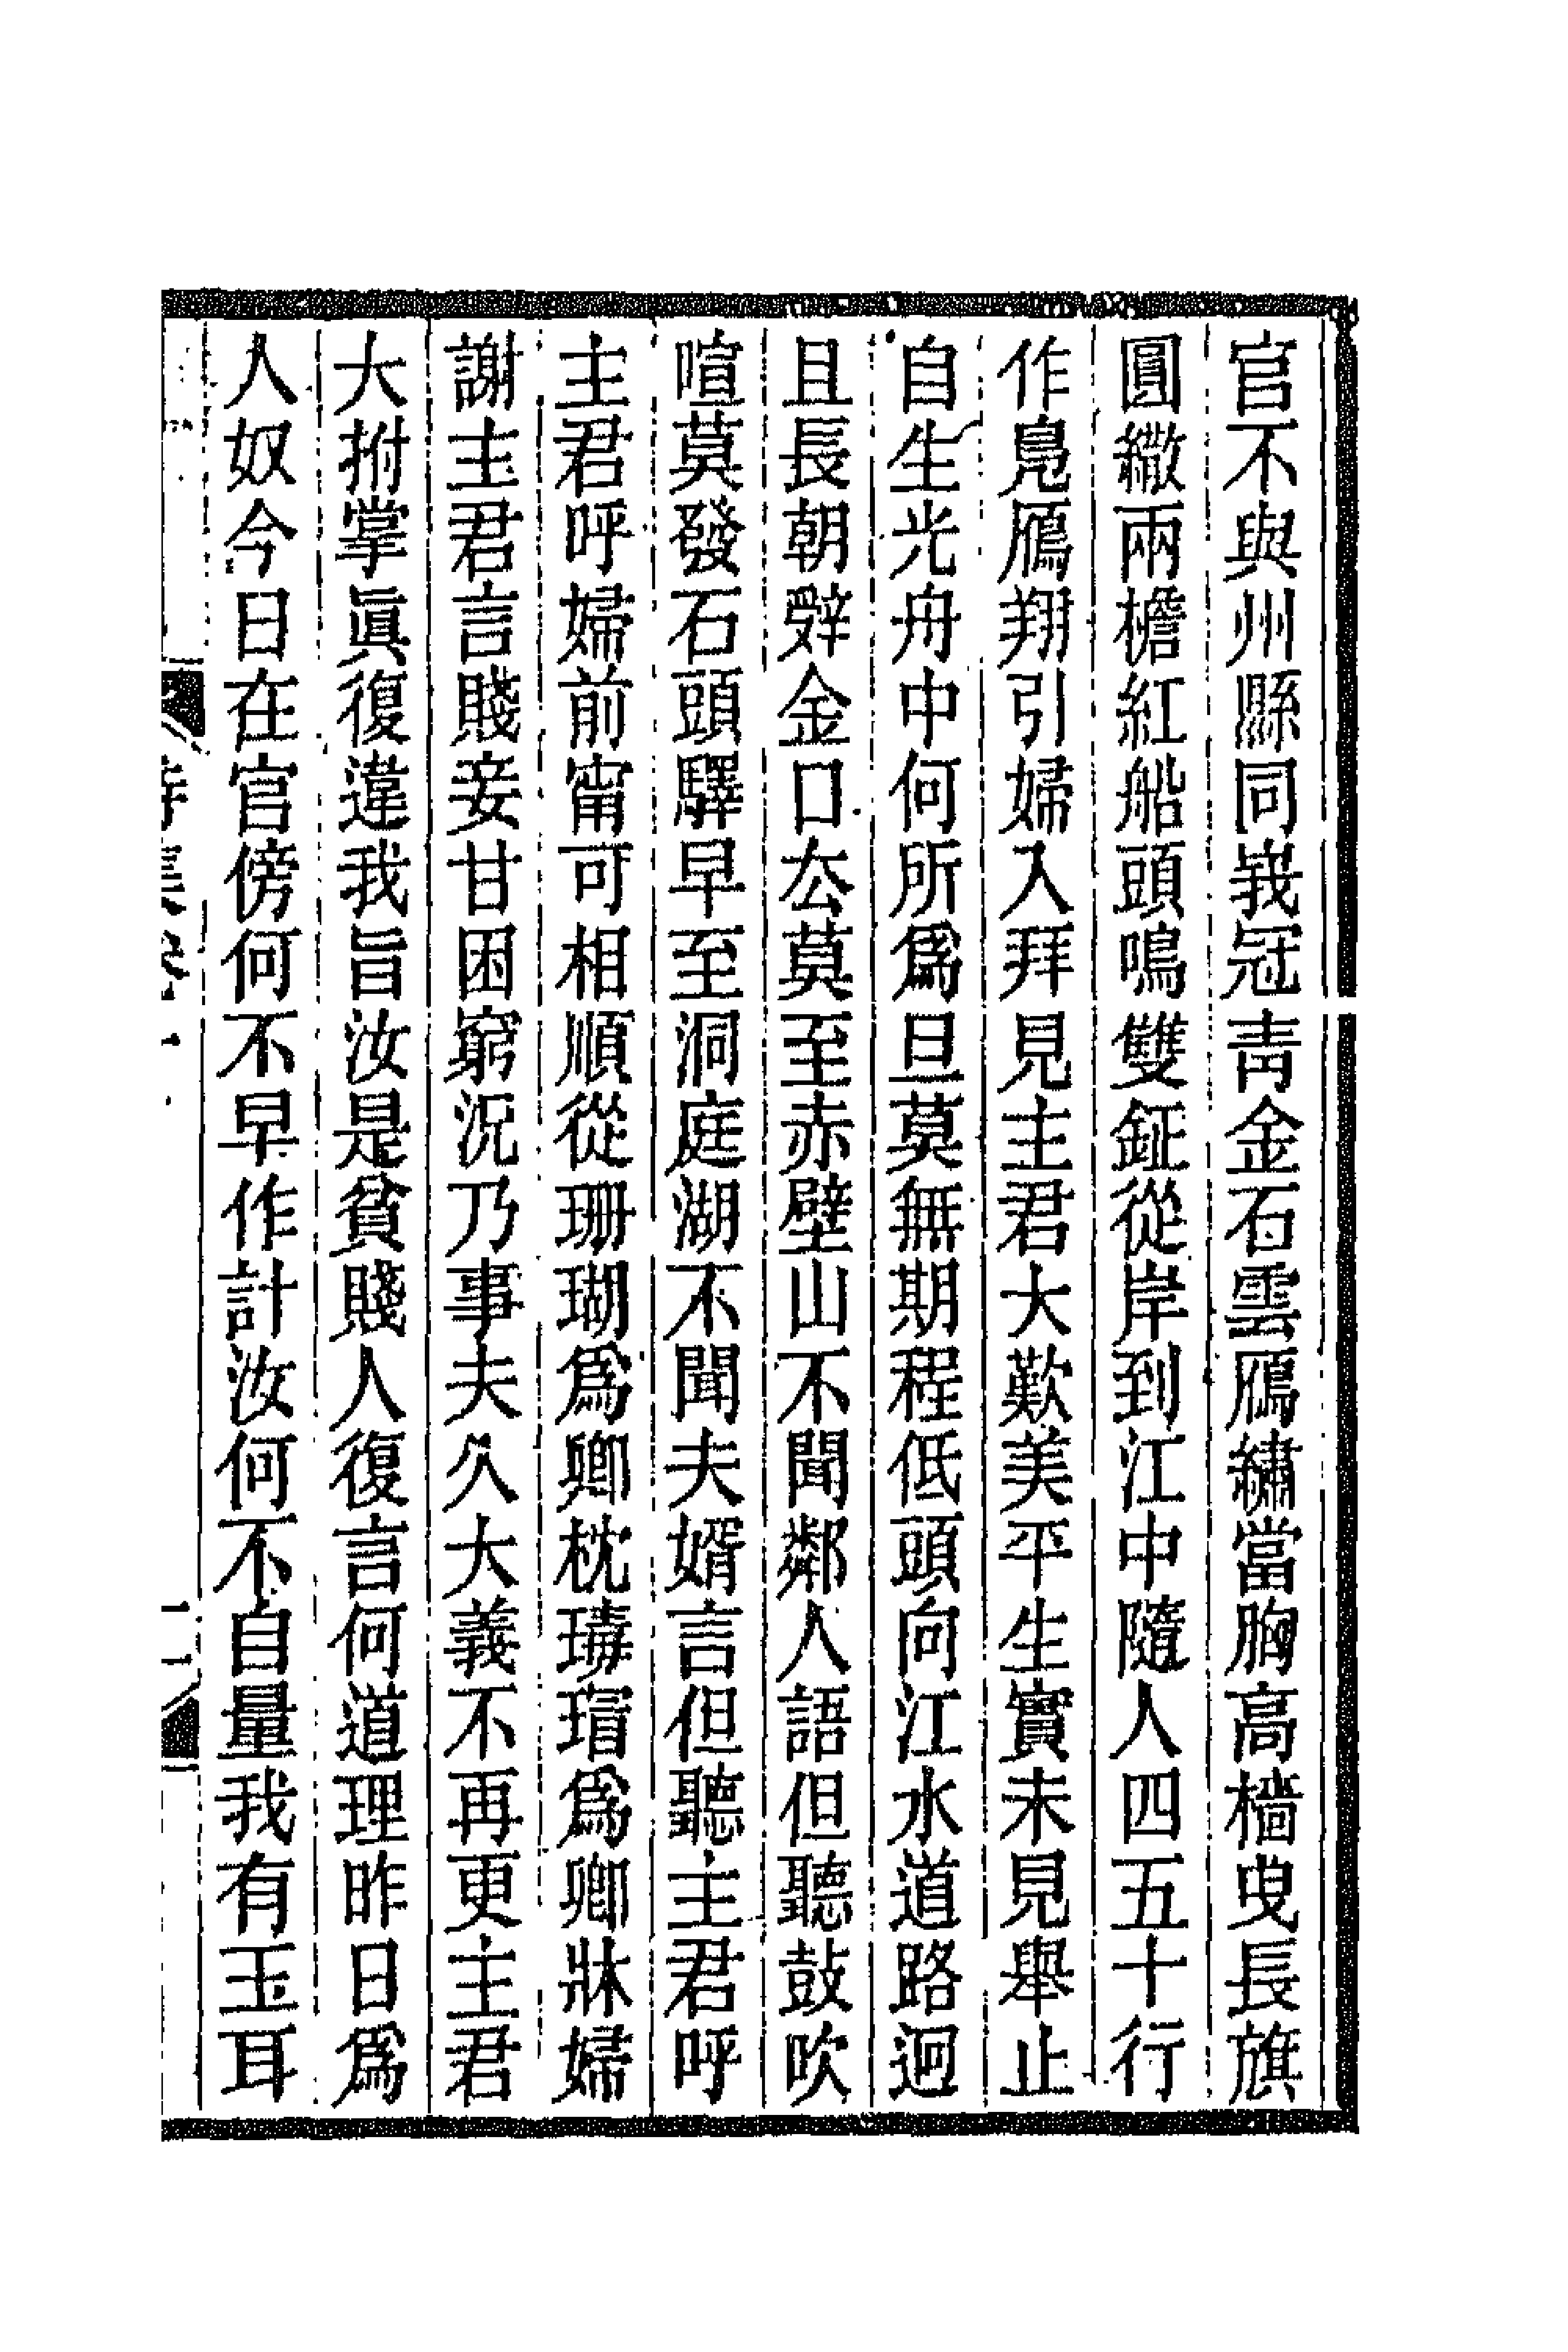 官不與州縣同峩冠青金石雲鴈繡當胸高檣曳長旗
圓繖兩檐紅船頭鳴雙鉦從岸到江中隨人四五十行
作鳧鴈翔引婦入拜見主君大歎美平生實未見舉止
自生光舟中何所爲旦莫無期程低頭向江水道路迥
且長朝辤金口厺莫至赤壁山不聞鄰人語但聽鼓吹
喧莫發石頭驛早至洞庭湖不聞夫婿言但聽主君呼
主君呼婦前甯可相順從珊瑚爲卿枕瑇瑁爲卿牀婦
謝主君言賤妾甘困窮況乃事夫久大義不再更主君
大拊掌眞復違我旨汝是貧賤人復言何道理昨日爲
人奴今日在官傍何不早作計汝何不自量我有玉耳